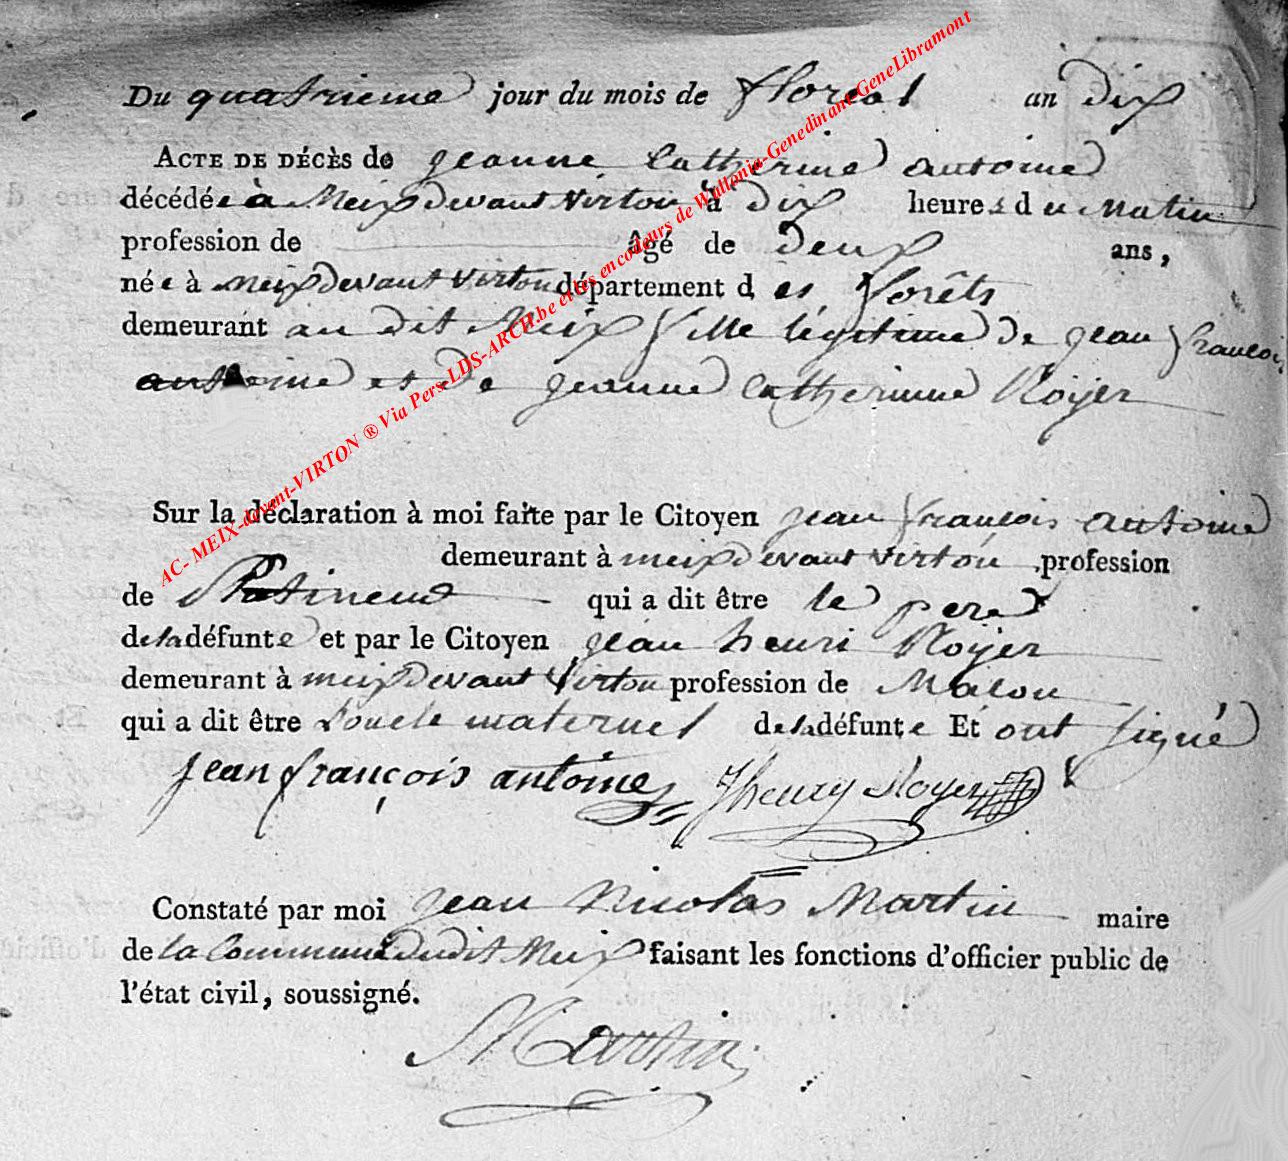 Du quatrieme jour du mois de floreal an dix
ACTE DE DÉCÈS de jeanne Catherine antoine
décédée à Meix devant virton à dix heures du Matin
profession de âgé de Deux ans,
née à Meix devant virton département des forêts
demeurant au dit Meix fille légitime de jean francois
antoine et de jeanne Catherinne Royer
Sur la déclaration à moi faite par le Citoyen jean françois antoine
demeurant à meix devant virton profession
de qui a dit être le pere
de la défunte et par le Citoyen jean henri Royer
demeurant à meix devant Virton profession de Maçon
qui a dit être Loncle maternel de la défunte Et ont signé
jean françois antoine Jhenry Royer
Constaté par moi jean Nicolas Martin maire
de la Commune dudit Meix faisant les fonctions d'officier public de
l'état civil, soussigné.
Martin
AC- MEIX-devant-VIRTON ® Via Pers-LDS-ARCH.be et les encodeurs de Wallonia-Genedinant-GeneLibramont